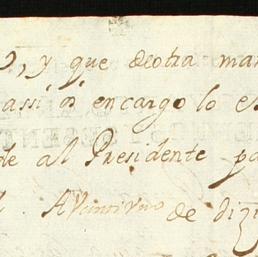 y que deotra man
assi os encargo lo es
de al Presidente pa
A Veintiuno de dizi